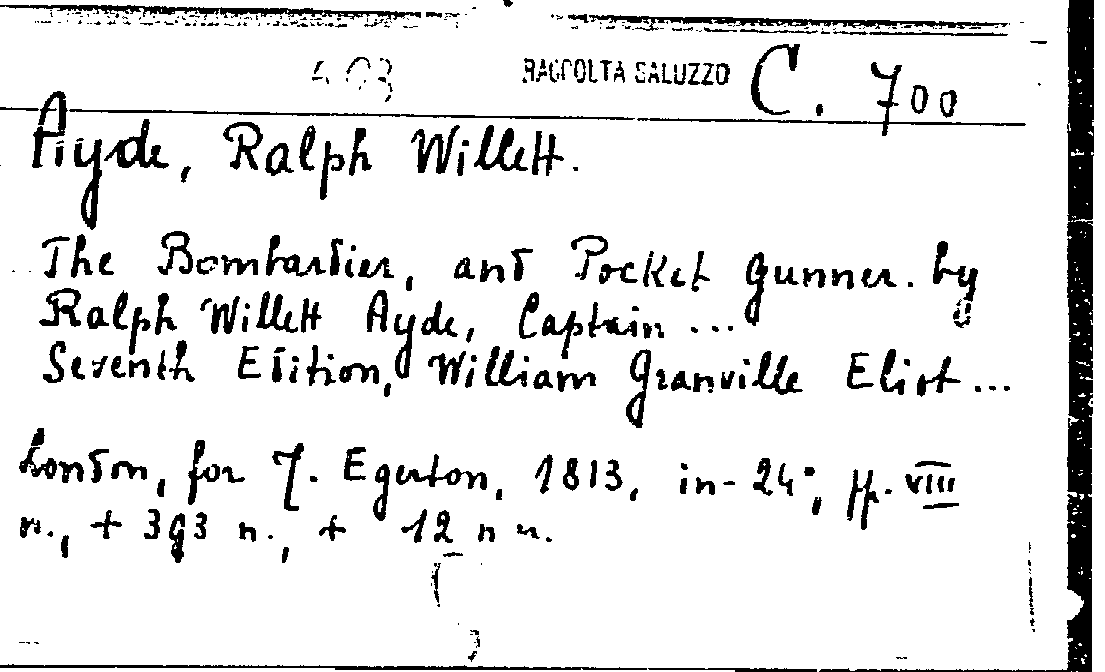 403 RACCOLTA SALUZZO C. 700
Ayde, Ralph Willett.
The Bombardier, and Pocket Gunner. by
Ralph Willett Ayde, Captain ...
Seventh Edition, William Granville Eliot ...
London, for T. Egerton, 1813, in-24°, pp. VIII
n., + 393 n., + 12 n n.